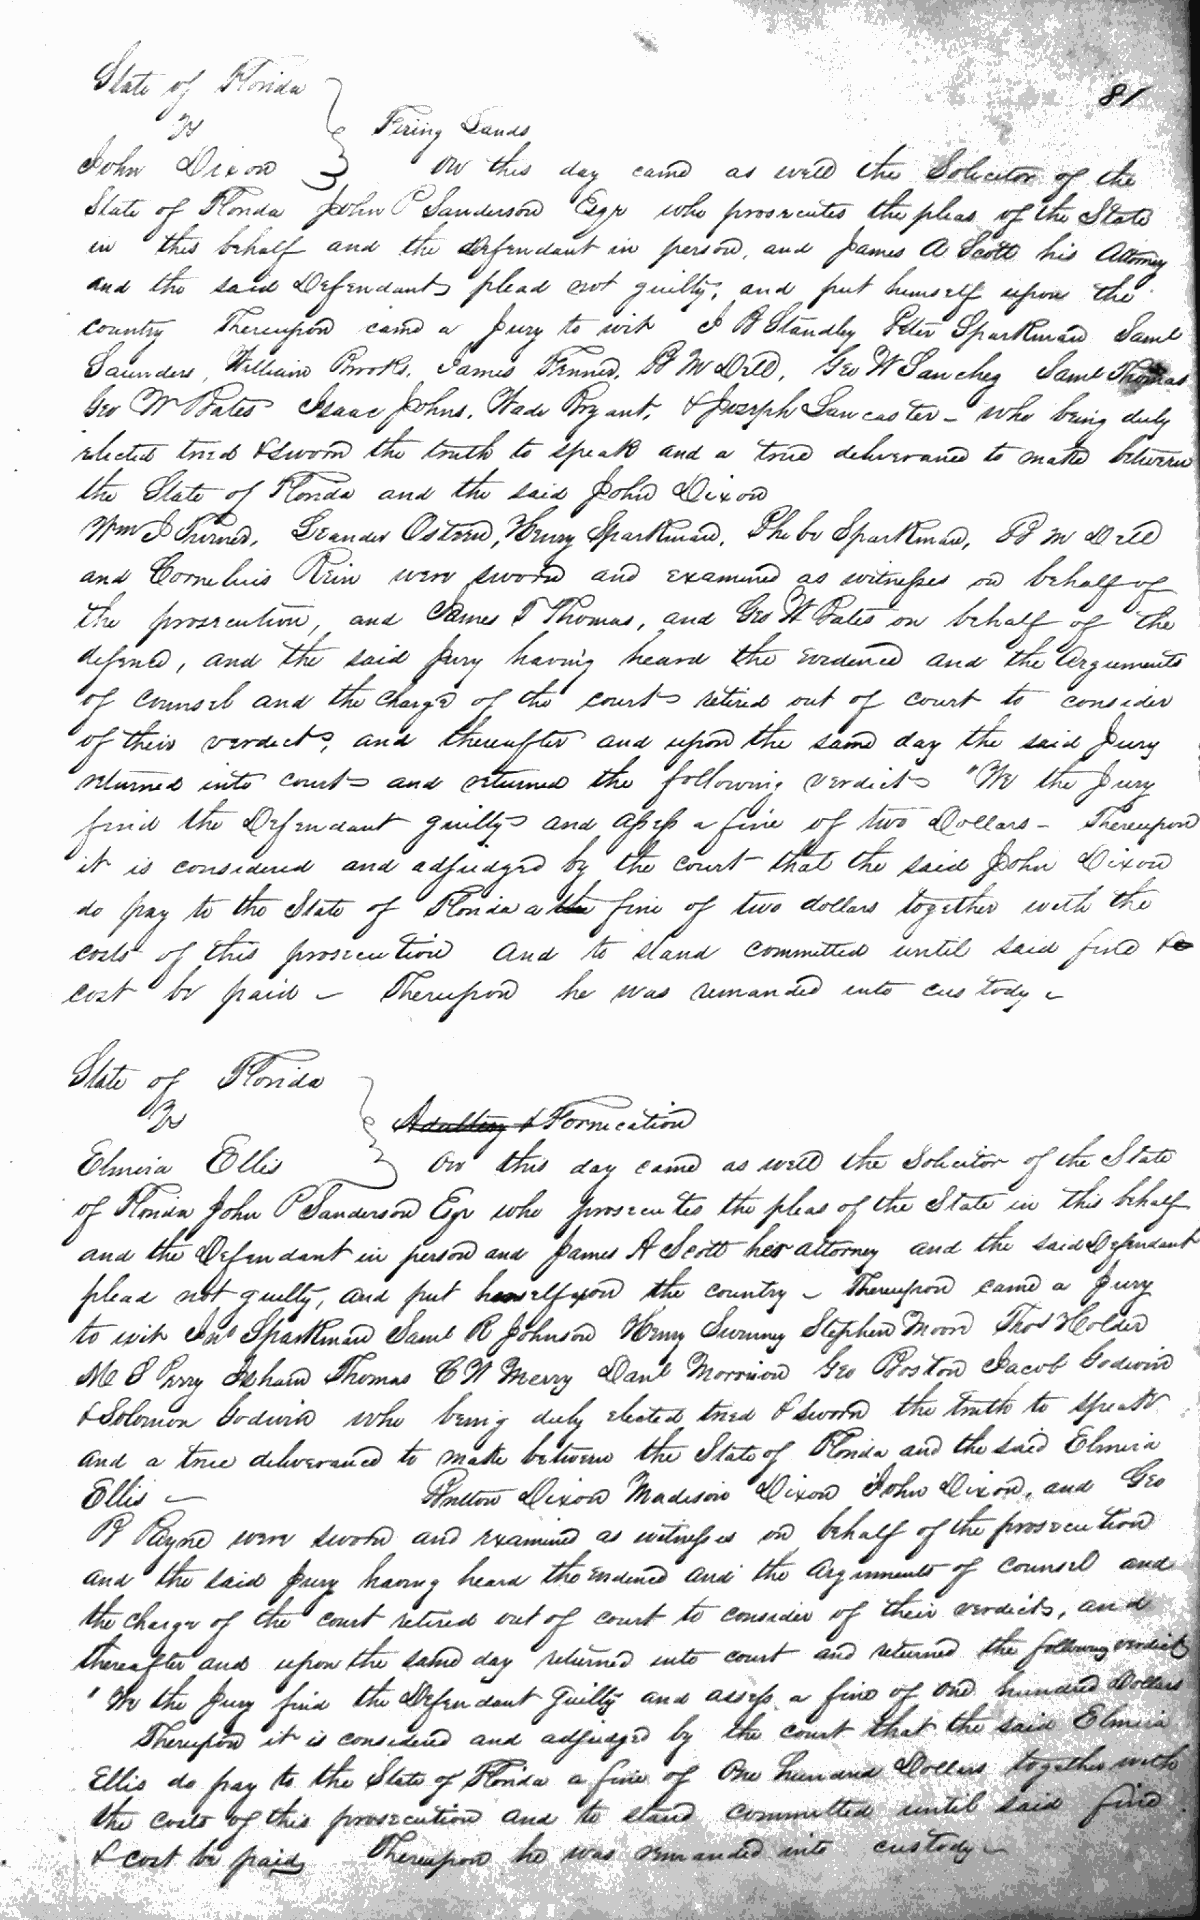 81
State of Florida
vs
Firing Lands
John Dixon
On this day came as well the Solicitor of the
State of Florida John P Sanderson Esqr who prosecutes the pleas of the State
in this behalf and the defendant in person, and James A Scott his Attorney
and the said Defendant plead not guilty, and put himself upon the
country Thereupon came a Jury to wit J B Standley Peter Sparkman Saml
Saunders, William Brooks, James Finned, B M Dell, Geo W Sanchez Saml Thomas
Geo W Bates Isaac Johns, Wade Bryant, & Joseph Lancaster - who being duly
elected tried & sworn the truth to speak and a true deliverance to make between
the State of Florida and the said John Dixon
Wm J Turner, Leander Osteen, Henry Sparkman, Phebe Sparkman, B M Dell
and Cornelius Rein were sworn and examined as witnesses on behalf of
the prosecution, and James T Thomas, and Geo W Bates on behalf of the
defence, and the said Jury having heard the evidence and the Arguments
of counsel and the charge of the court retired out of court to consider
of their verdict, and thereafter and upon the same day the said Jury
returned into court and returned the following verdict "We the Jury
find the Defendant guilty and assess a fine of two Dollars - Thereupon
it is considered and adjudged by the court that the said John Dixon
do pay to the State of Florida a the fine of two dollars together with the
costs of this prosecution and to stand committed until said fine &
cost be paid - Thereupon he was remanded into custody -
State of Florida
vs
Adultery & Fornication
Elmira Ellis
On this day came as well the Solicitor of the State
of Florida John P Sanderson Esqr who prosecutes the pleas of the State in this behalf
and the Defendant in person and James A Scott her attorney and the said Defendant
plead not guilty, and put herself upon the country - Thereupon came a Jury
to wit Jno Sparkman Saml R Johnson Henry Swinney Stephen Moore Thos Holder
M S Perry Isham Thomas C W Merry Danl Morrison Geo Boston Jacob Godwin
& Solomon Godwin who being duly elected tried & sworn the truth to speak
and a true deliverance to make between the State of Florida and the said Elmira
Ellis - Dixon Madison Dixon John Dixon, and Geo
R Payne were sworn and examined as witnesses on behalf of the prosecution
and the said Jury having heard the evidence and the Arguments of counsel and
the charge of the court retired out of court to consider of their verdict, and
thereafter and upon the same day returned into court and returned the following verdict
" We the Jury find the Defendant guilty and assess a fine of one hundred Dollars
Thereupon it is considered and adjudged by the court that the said Elmira
Ellis do pay to the State of Florida a fine of One hundred Dollars together with
the costs of this prosecution and to stand committed until said fine
& cost be paid Thereupon he was remanded into custody -